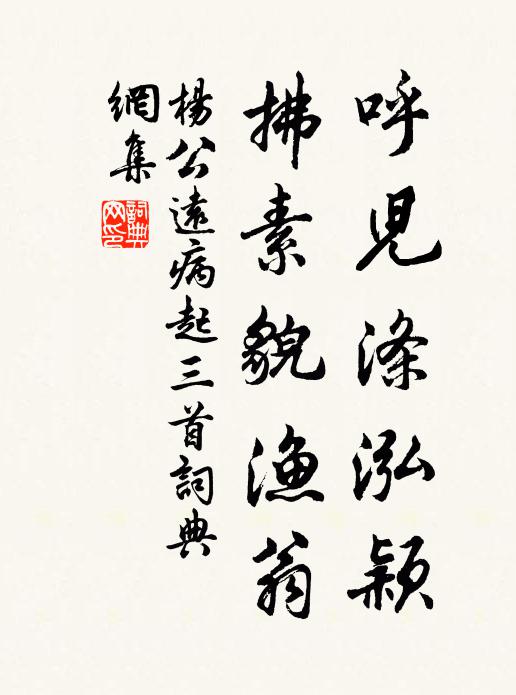 呼児滌泓颖
拂素貌漁翁
楊公遠病起三首詞典
網集
詞典网印